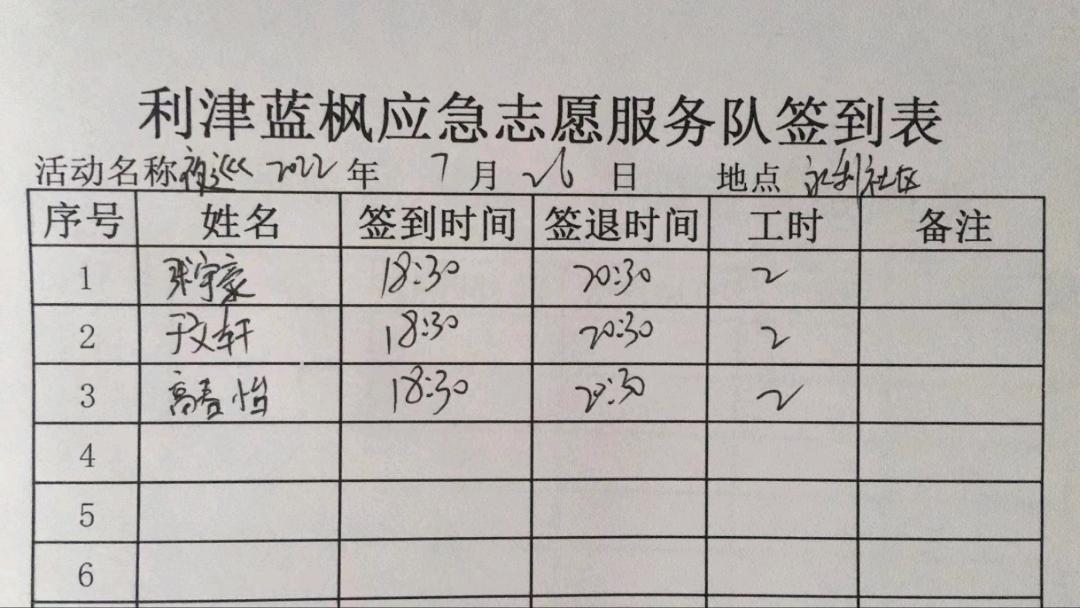 利津蓝枫应急志愿服务队签到表
活动名称 夜巡 2022 年 7 月 26 日 地点 永利社区
序号 姓名 签到时间 签退时间 工时 备注
1 张宇豪 18:30 20:30 2
2 于文轩 18:30 20:30 2
3 高春怡 18:30 20:30 2
4
5
6